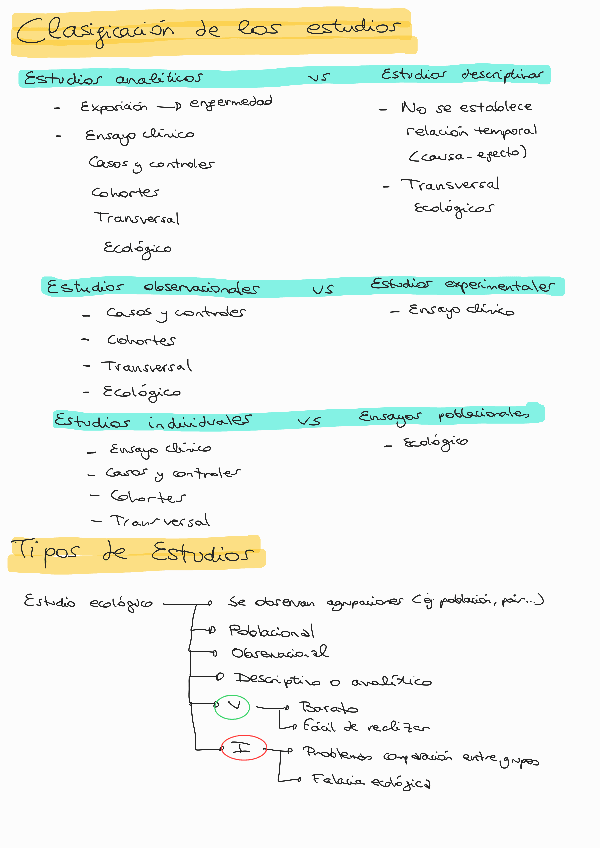 Clasificación de los estudios
Estudios analíticos vs Estudios descriptivos
- Exposición → enfermedad
- Ensayo clínico
Casos y controles
Cohortes
Transversal
Ecológico
- No se establece
relación temporal
(causa-efecto)
- Transversal
Ecológicos
Estudios observacionales vs Estudios experimentales
- Casos y controles
- Cohortes
- Transversal
- Ecológico
- Ensayo clínico
Estudios individuales vs Ensayos poblacionales
- Ensayo clínico
- Casos y controles
- Cohortes
- Transversal
- Ecológico
Tipos de Estudios
Estudio ecológico
Se observan agrupaciones (ej población, país...)
Poblacional
Observacional
Descriptivo o analítico
V
Barato
Fácil de realizar
I
Problemas comparación entre grupos
Falacia ecológica